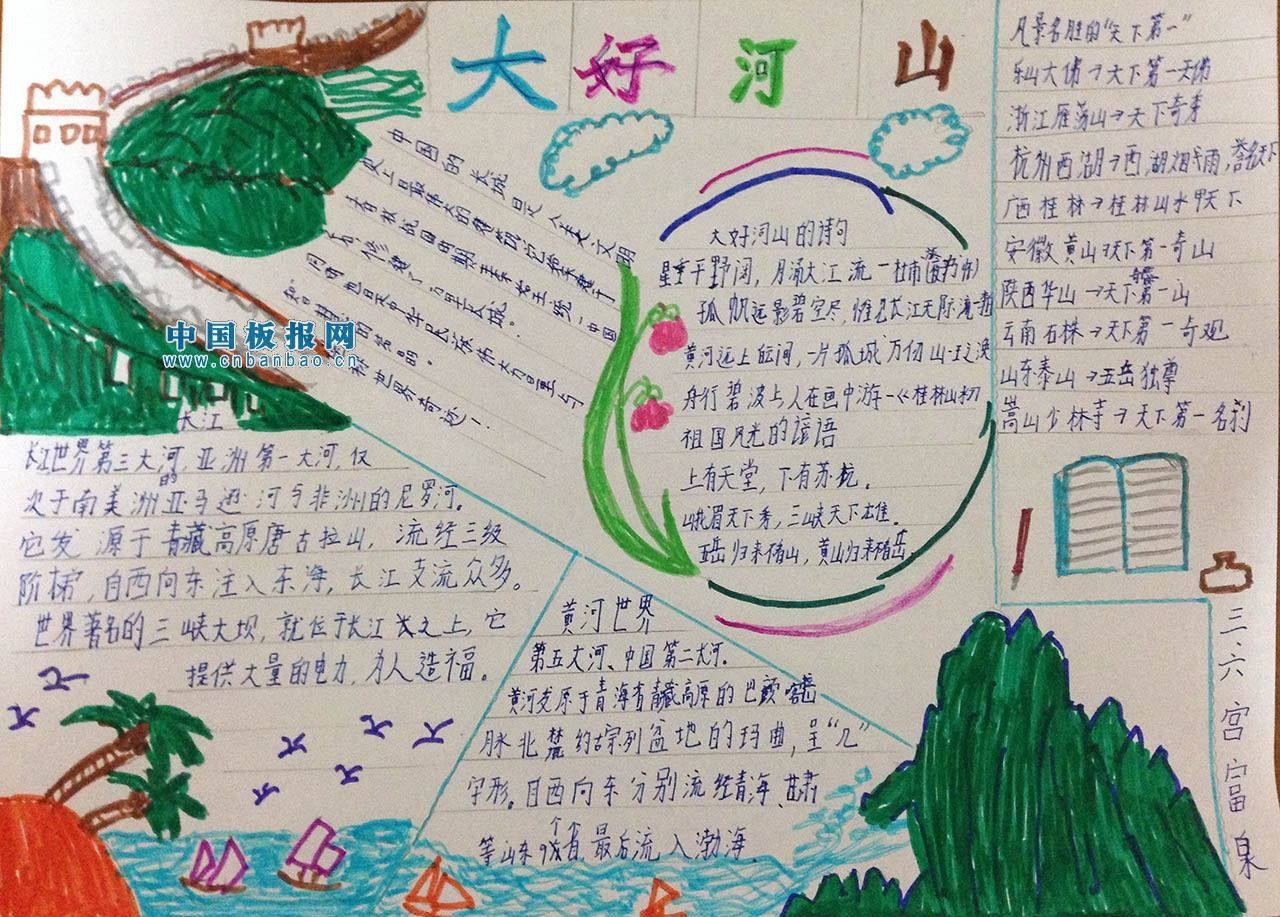 大好河山
中国的长城是人类文明
史上最伟大的建筑
春秋战国时期
修建了万里长城。
和世界奇迹！
中国板报网
www.cnbanbao.cn
长江
长江世界第三大河，亚洲第一大河，仅
次于南美洲的亚马逊河与非洲的尼罗河。
它发源于青藏高原唐古拉山，流经三级
阶梯，自西向东注入东海，长江支流众多。
世界著名的三峡大坝，就位于长江长之上，它
提供大量的电力，为人造福。
黄河世界
第五大河、中国第二大河。
黄河发原于青海省青藏高原的巴颜喀
脉北麓约古宗列盆地的玛曲，呈“几”
字形。自西向东分别流经青海、甘肃
等山东9个省，最后流入渤海。
大好河山的诗句
星垂平野阔，月涌大江流一杜甫
孤帆远影碧空尽，惟见长江天际流一
黄河远上白云间，一片孤城万仞山-王之涣
舟行碧波上人在画中游一《桂林山
祖国风光的谚语
上有天堂，下有苏杭。
峨眉天下秀，三峡天下雄。
五岳归来不看山，黄山归来不看岳。
风景名胜的“天下第一”
乐山大佛→天下第一大佛
浙江雁荡山→天下奇秀
杭州西湖→西湖烟雨，誉名天下
广西桂林→桂林山水甲天下
安徽黄山→天下第一奇山
陕西华山→天下第一山
云南石林→天下第一奇观
山东泰山→五岳独尊
嵩山少林寺→天下第一名刹
三、六宫富泉